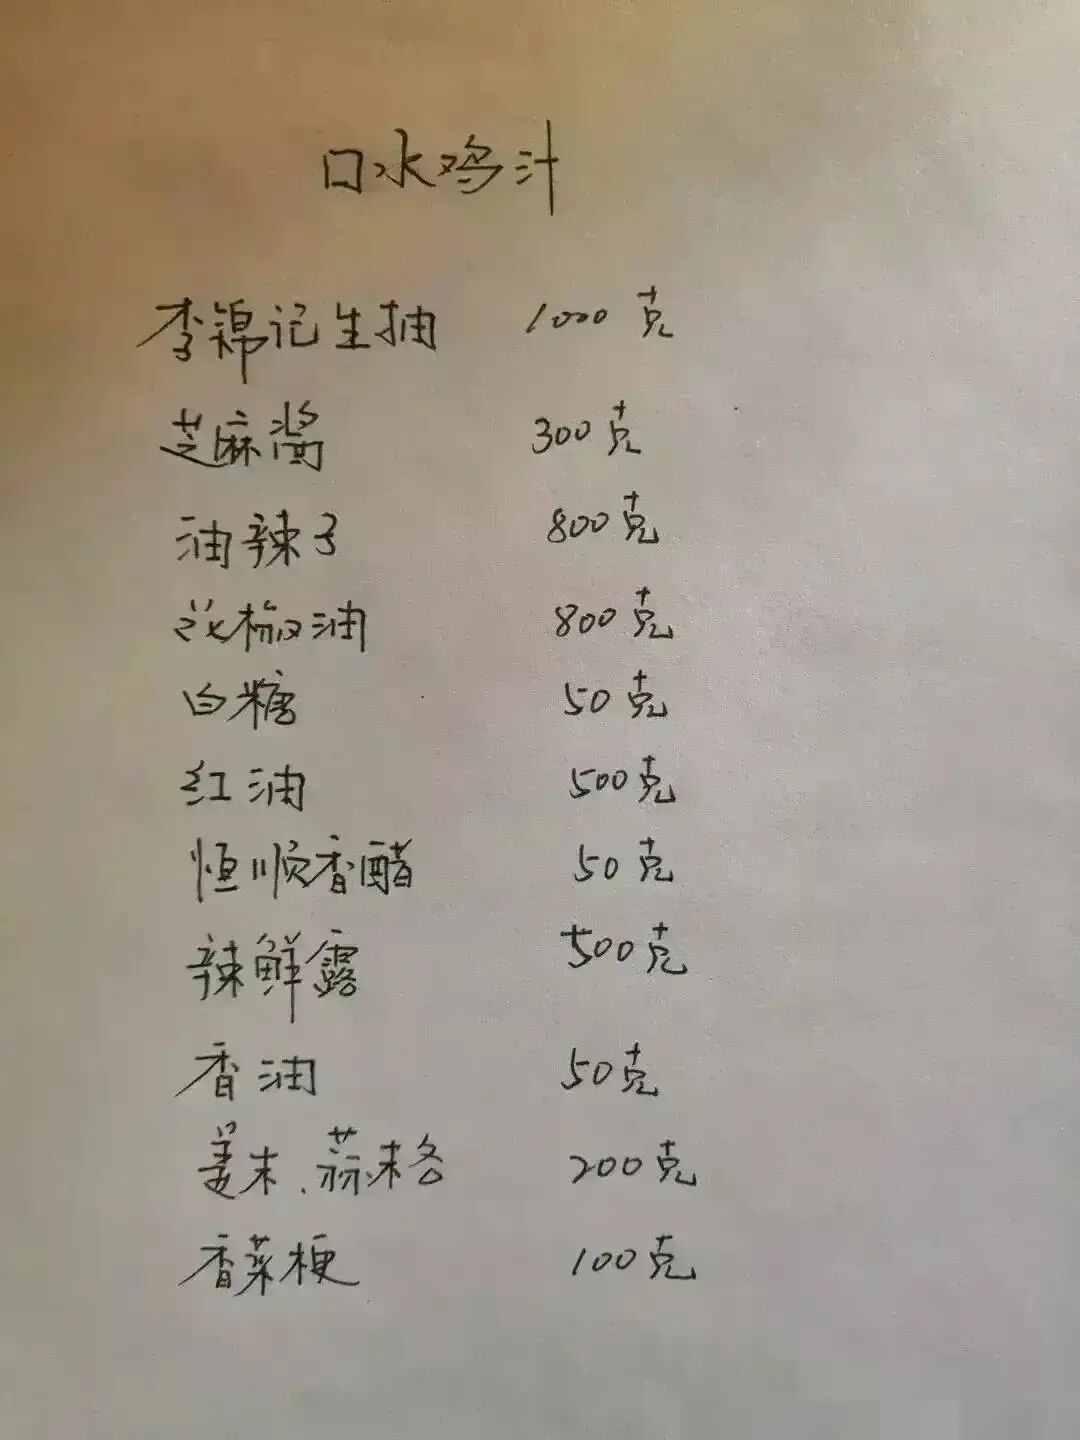 口水鸡汁
李锦记生抽 1000克
芝麻酱 300克
油辣子 800克
花椒油 800克
白糖 50克
红油 500克
恒顺香醋 50克
辣鲜露 500克
香油 50克
姜末、蒜末各 200克
香菜梗 100克